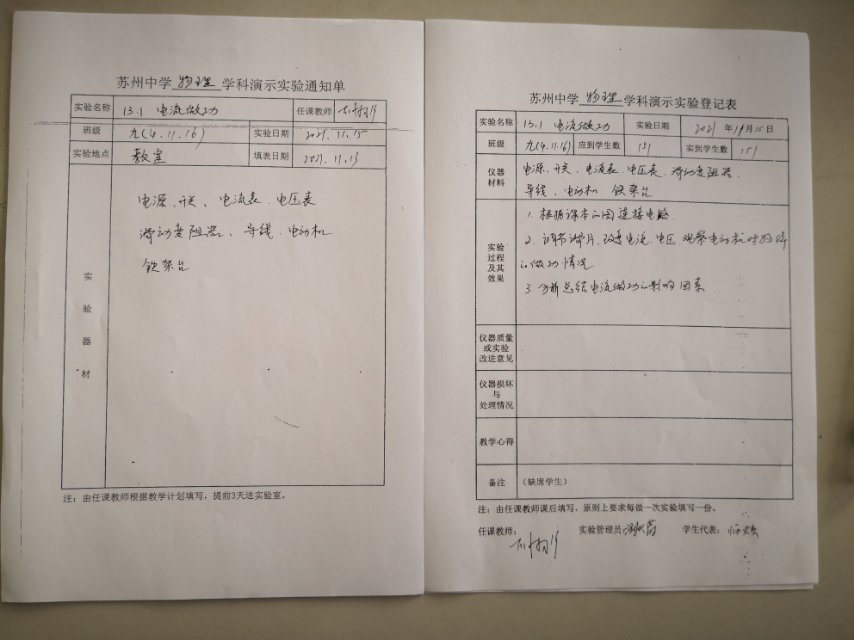 苏州中学 物理 学科演示实验通知单
实验名称 13.1 电流做功 任课教师
班级 九(4.11.16) 实验日期 2021.11.15
实验地点 教室 填表日期 2021.11.13
实验器材
电源、开关、电流表、电压表
滑动变阻器、导线、电动机
铁架台
注：由任课教师根据教学计划填写，提前3天送实验室。
苏州中学 物理 学科演示实验登记表
实验名称 13.1 电流做功 实验日期 2021年11月15日
班级 九(4.11.16) 应到学生数 151 实到学生数 151
仪器材料
电源、开关、电流表、电压表、滑动变阻器、
导线、电动机 铁架台
实验过程及其效果
1. 根据课本的图连接电路.
2. 调节滑片、改变电流、电压 观察电动机
的做功情况
3. 分析总结电流做功的影响因素
仪器质量或实验改进意见
仪器损坏与处理情况
教学心得
备注 （缺席学生）
注：由任课教师课后填写，原则上要求每做一次实验填写一份。
任课教师： 实验管理员： 学生代表：